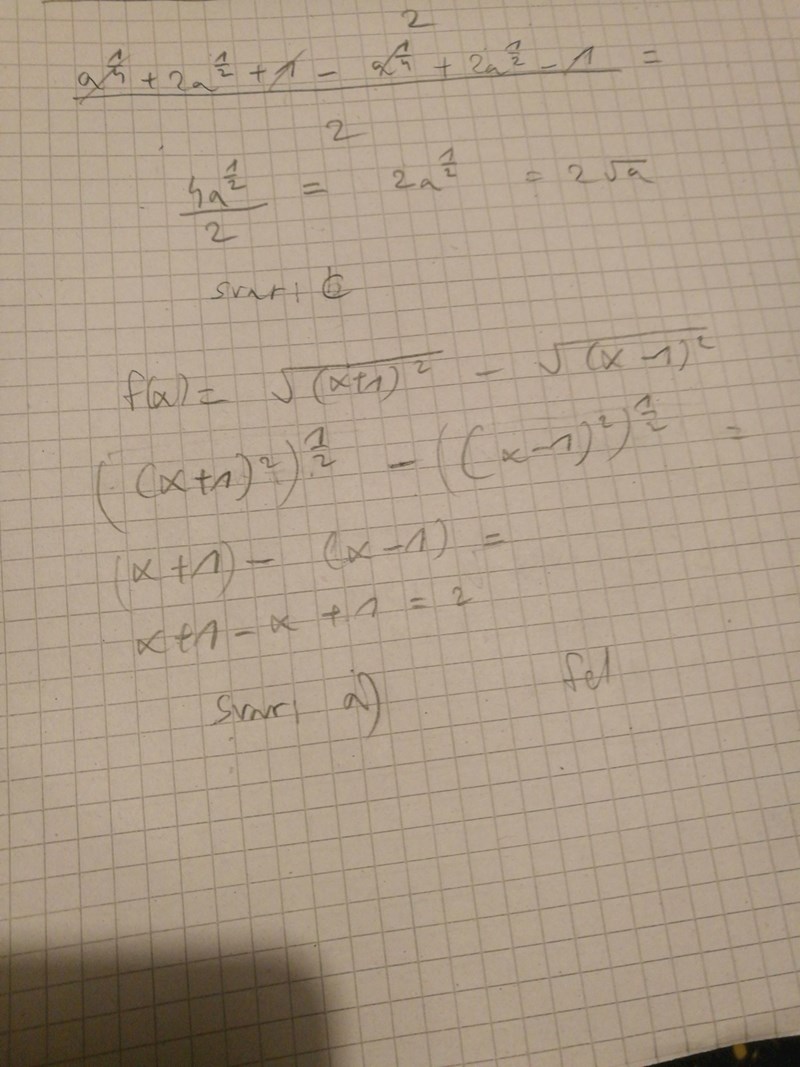 2
a^{1/4} + 2a^{1/2} + 1 - a^{1/4} + 2a^{1/2} - 1 =
2
4a^{1/2} / 2 = 2a^{1/2} = 2√a
svar:
f(x) = √(x+1)² - √(x-1)²
((x+1)²)^{1/2} - ((x-1)²)^{1/2} =
(x+1) - (x-1) =
x+1-x+1 = 2
Svar: a)
fel